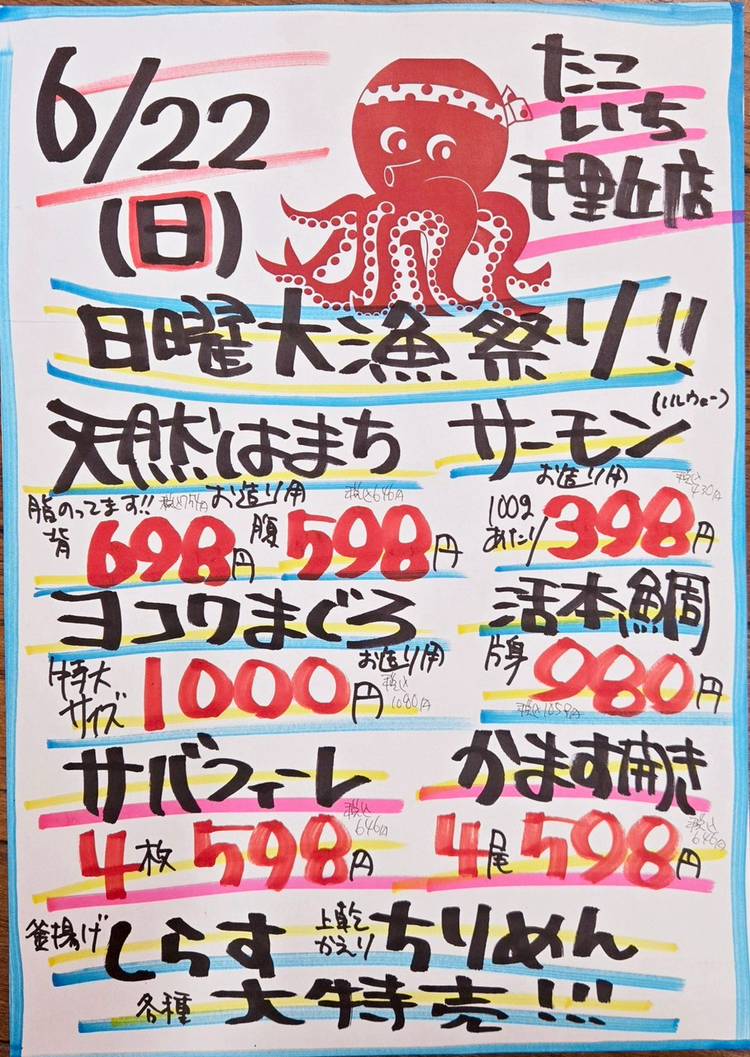 6/22
(日)
たこ
いち
千里丘店
日曜大漁祭り!!
天然はまち
脂のってます!! 税込754円 お造り用 税込646円
背 698円 腹 598円
サーモン (ノルウェー)
お造り用 税込430円
100gあたり 398円
ヨコワまぐろ
特大サイズ 1000円 お造り用 税込1080円
活本鯛
片身 980円
税込1059円
サバフィーレ
4枚 598円 税込646円
かます開き
4尾 598円 税込646円
釜揚げ しらす 上乾 かえり ちりめん
各種 大特売!!!